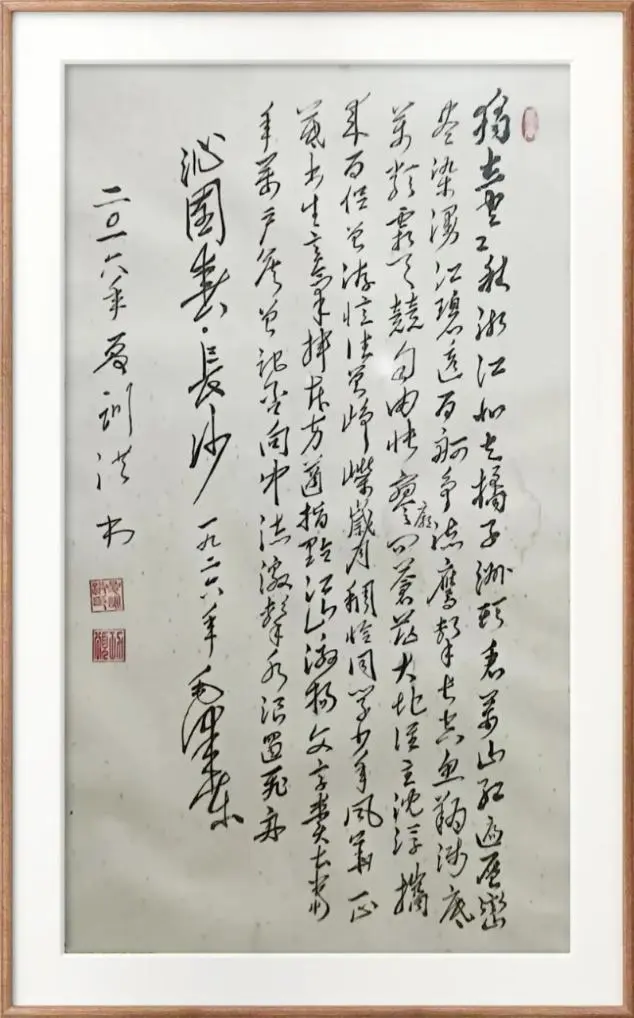 獨立寒秋湘江北去橘子洲頭看萬山紅遍層巒
盡染漫江碧透百舸爭流鷹擊長空魚翔淺底
萬類霜天競自由悵寥廓問蒼茫大地誰主沈浮攜
來百侶曾游憶往昔崢嶸歲月稠恰同學少年風華正
茂書生意氣揮斥方遒指點江山激揚文字糞土當
年萬戶侯曾記否向中流激擊水浪遏飛舟
沁園春·長沙 一九二六年 毛澤東
二〇一六年夏訓洪书